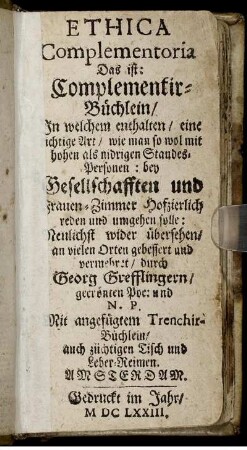 ETHICA
Complementoria
Das ist:
Complementir-
Büchlein/
In welchem enthalten/ eine
richtige Art/ wie man so wol mit
hohen als nidrigen Standes-
Personen: bey
Gesellschafften und
Frauen-Zimmer Hofzierlich
reden und umgehen solle:
Neulichst wider übersehen/
an vielen Orten gebessert und
vermehret/ durch
Georg Grefflingern/
gecrönten Poe: und
N. P.
Mit angefügtem Trenchir-
Büchlein/
auch züchtigen Tisch und
Leber-Reimen.
AMSTERDAM.
Gedruckt im Jahr/
M DC LXXIII.